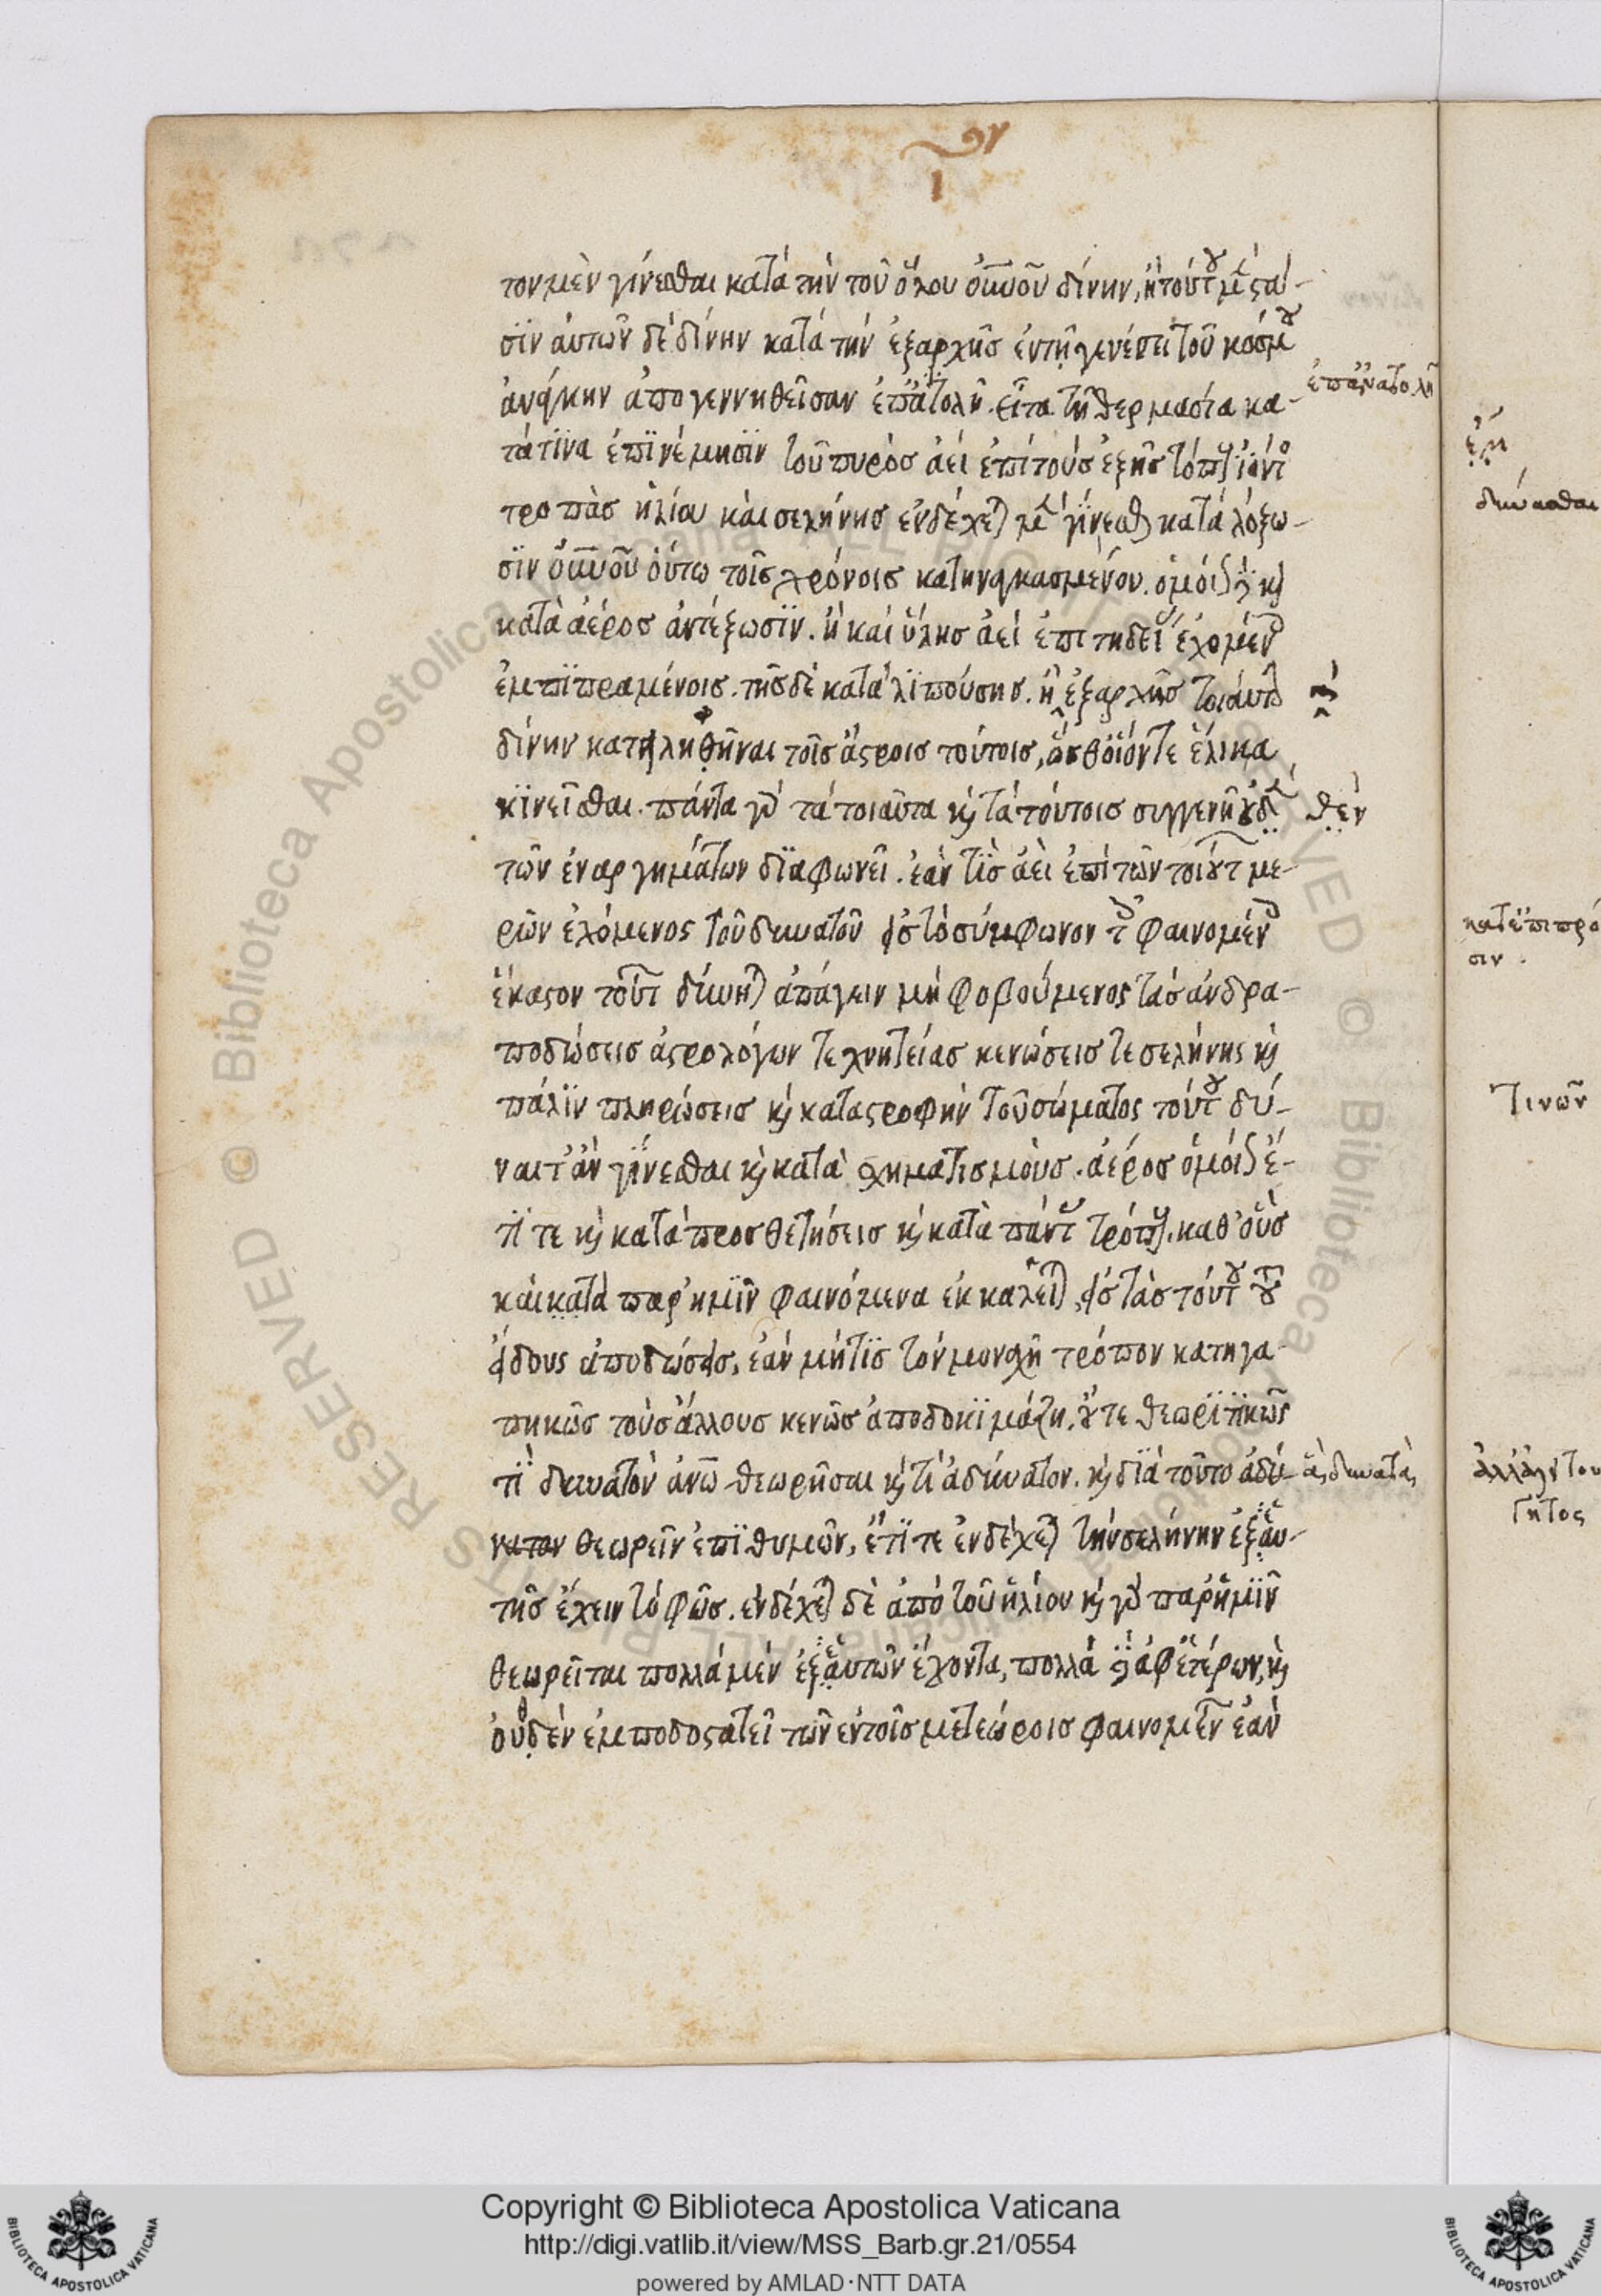 τον μὲν γίνεσθαι κατὰ τὴν τοῦ ὅλου οὐρανοῦ δίνην, ἢ τούτου μὲν στά-
σϊν αὐτῶν δὲ δίνην κατὰ τὴν ἐξαρχῆσ ἐν τῆ γενέσει τοῦ κόσμου
ἀνάγκην ἀπογεννηθεῖσαν ἐπ' ἀτολῆ. εἶτα τῆ θερμασία κα-
ἐπ' ἀνατολῆ
τά τϊνα ἐπϊνέμησϊν τοῦ πυρὸσ ἀεὶ ἐπὶ τοὺσ ἑξῆσ τόπους ἰόντος
τροπὰσ ἡλίου καὶ σελήνησ ἐνδέχεται μὲν γίνεσθαι κατὰ λόξω-
σϊν οὐρανοῦ οὕτω τοῖσ χρόνοισ κατηναγκασμένου. ὁμοίως δὲ καὶ
κατὰ ἀέροσ ἀντέξωσϊν. ἢ καὶ ὕλησ ἀεὶ ἐπιτηδείως ἐχομένων
ἐμπϊπραμένοισ. τῆσ δὲ καταλϊπούσησ. ἢ ἐξαρχῆσ τοιαύτην
δίνην κατηληθῆναι τοῖσ ἄστροισ τούτοισ, ὡσθ' οἷόν τε ἕλικα
κϊνεῖσθαι. πάντα γὰρ τὰ τοιαῦτα καὶ τὰ τούτοισ συγγενῆ οὐδὲ
θὲν
τῶν ἐναργημάτων δϊαφωνεῖ. ἐάν τϊσ ἀεὶ ἐπὶ τῶν τοιούτων με-
ρῶν ἐχόμενος τοῦ δυνατοῦ εἰς τὸ σύμφωνον τῶν φαινομένων
ἕκαστον τούτων δύνηται ἀπάγειν μὴ φοβούμενος τὰσ ἀνδρα-
ποδώσεισ ἀστρολόγων τεχνητείασ κενώσεισ τε σελήνης καὶ
πάλϊν πληρώσεισ καὶ καταστροφὴν τοῦ σώματος τούτου δύ-
ναιτ' ἂν γίνεσθαι καὶ κατὰ σχηματισμοὺσ. ἀέροσ ὁμοίως ἔ-
τϊ τε καὶ κατὰ προσθετήσεισ καὶ κατὰ πάντας τρόπους. καθ' οὓσ
καὶ κατὰ παρ' ἡμῖν φαινόμενα ἐκκαλεῖται, εἰς τὰσ τούτου τοῦ
εἴδους ἀποδώσεισ, ἐὰν μή τϊσ τὸν μοναχῆ τρόπον κατηγα-
πηκῶσ τοὺσ ἄλλουσ κενῶσ ἀποδοκϊμάζη, οὔτε θεωρϊτϊκῶς
τϊ δυνατὸν ἀνθρώπω θεωρῆσαι καὶ τί ἀδύνατον. καὶ δϊὰ τοῦτο ἀδύ-
ἀδυνατας
νατον θεωρεῖν ἐπϊθυμῶν, ἔτϊ τε ἐνδέχεται τὴν σελήνην ἐξ αυ-
τῆσ ἔχειν τὸ φῶσ. ἐνδέχεται δὲ ἀπὸ τοῦ ἡλίου καὶ γὰρ παρ' ἡμϊν
θεωρεῖται πολλὰ μὲν ἐξ αυτῶν ἔχοντα, πολλὰ δὲ ἀφ' ἑτέρων, καὶ
οὐδὲν ἐμποδοστατεῖ τῶν ἐν τοῖσ μετεώροισ φαινομένων ἐὰν
τινῶν
Copyright © Biblioteca Apostolica Vaticana
http://digi.vatlib.it/view/MSS_Barb.gr.21/0554
powered by AMLAD·NTT DATA